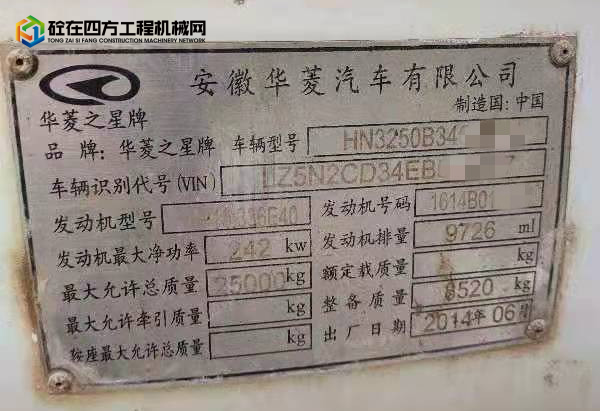 砼在四方工程机械网
TONG ZAI SI FANG CONSTRUCTION MACHINERY NETWORK
安徽华菱汽车有限公司
制造国:中国
华菱之星牌
品 牌: 华菱之星牌 车辆型号 HN3250B34
车辆识别代号(VIN) LZ5N2CD34EB
发动机型号 336E40 发动机号码 1614B01
发动机最大净功率 242 kw 发动机排量 9726 ml
最大允许总质量 25000 kg 额定载质量 kg
最大允许牵引质量 kg 整备质量 8520 kg
鞍座最大允许总质量 kg 出厂日期 2014年 06月